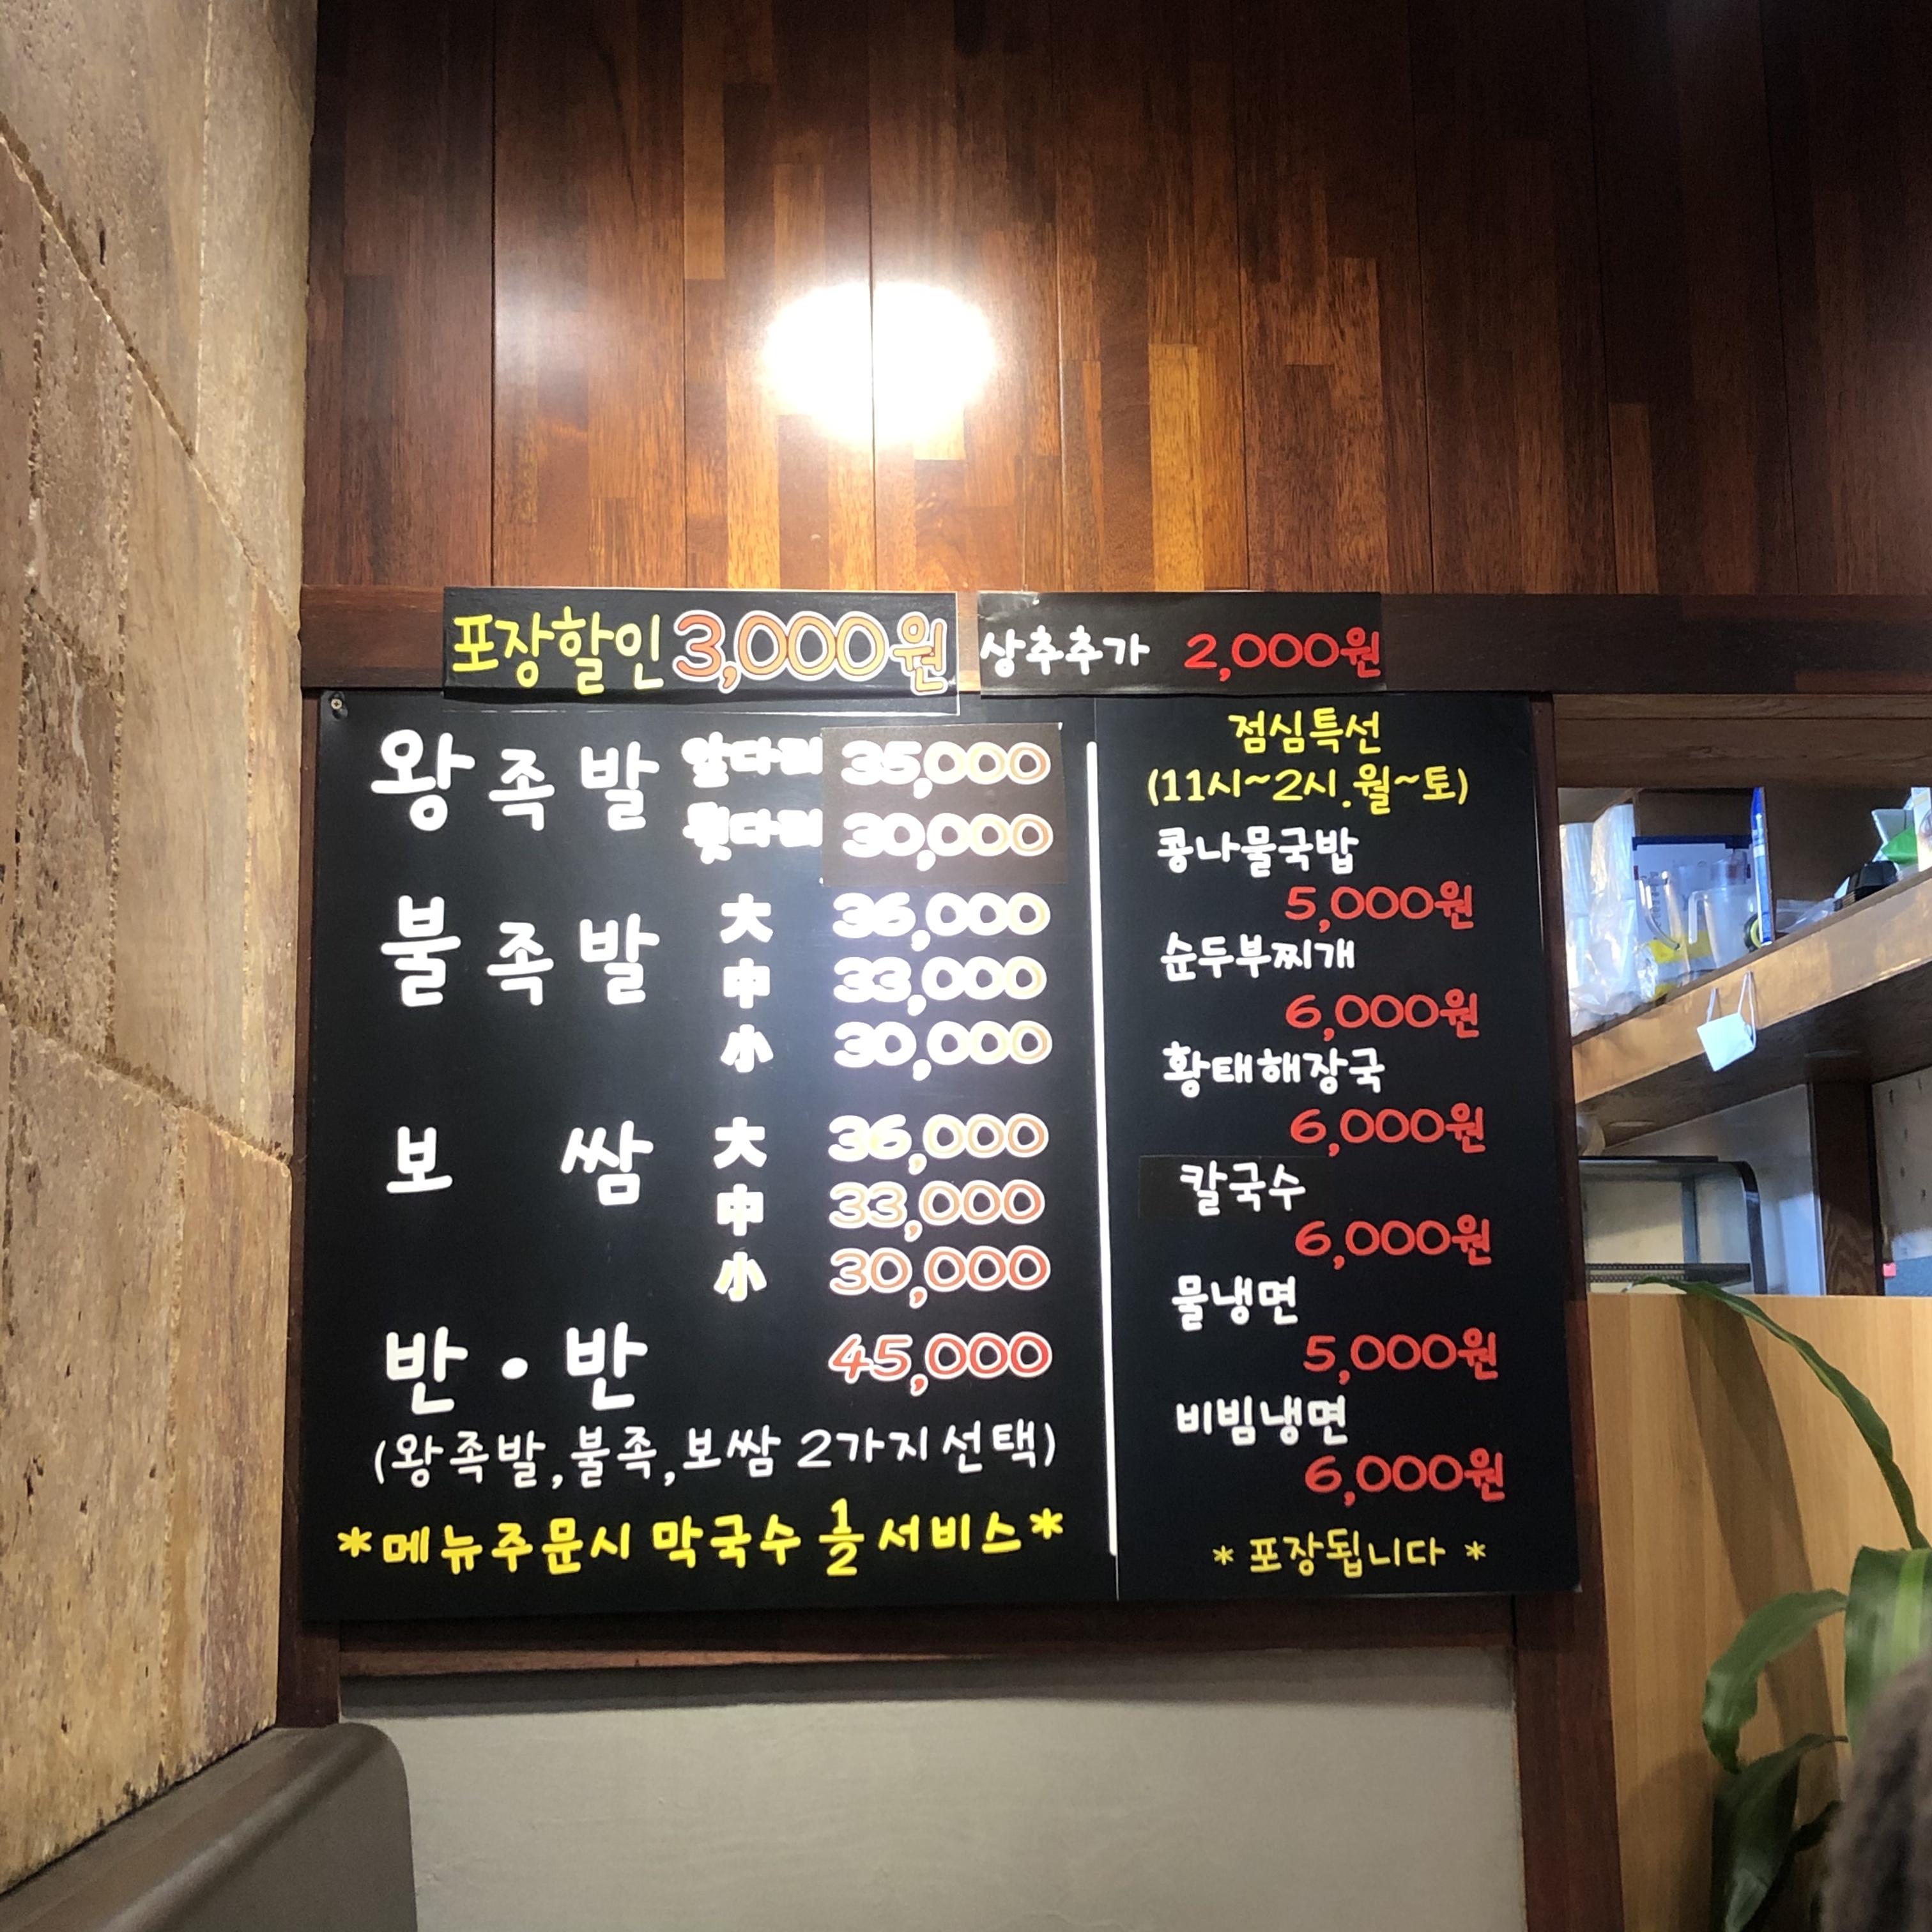 포장할인 3,000원
상추추가 2,000원
왕족발 앞다리 35,000
뒷다리 30,000
불족발 大 36,000
中 33,000
小 30,000
보쌈 大 36,000
中 33,000
小 30,000
반·반 45,000
(왕족발,불족,보쌈 2가지선택)
*메뉴주문시 막국수 1를 서비스*
점심특선
(11시~2시.월~토)
콩나물국밥
5,000원
순두부찌개
6,000원
황태해장국
6,000원
칼국수
6,000원
물냉면
5,000원
비빔냉면
6,000원
* 포장됩니다 *